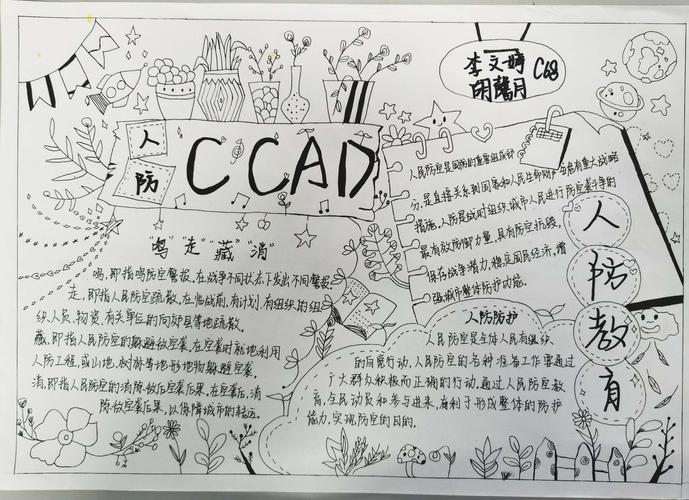 李文婷
胡馨月
C68
人防
CCAD
"鸣""走""藏""消"
鸣,即指鸣防空警报。在战争不同状态下发出不同警报
走,即指人民防空疏散。在临战前,有计划、有组织的组
织人员、物资、有关单位的向郊县等地疏散。
藏,即指人民防空的躲避敌空袭。在空袭时就地利用
人防工程,或山地、树林等地形地物躲避空袭。
消,即指人民防空的消除敌后空袭后果。在空袭后,消
除敌空袭后果,以保障城市的
人民防空是国防的重要组成部
分,是直接关系到国家和人民生命财产安危有重大战略
措施,人防是战时组织城市人民进行防空袭斗争的
最有效防御力量,具有防空抗毁,
保存战争潜力,稳定国民经济,增
强城市整体防护功能。
人防教育
人防防护
人民防空是全体人民有组织
的自觉行动,人民防空的各种准备工作需要通过
广大群众积极而正确的行动,通过人民防空教
育,全民动员和参与进来,有利于形成整体的防护
能力,实现防空的目的。